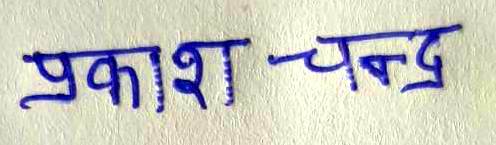 प्रकाश चन्द्र